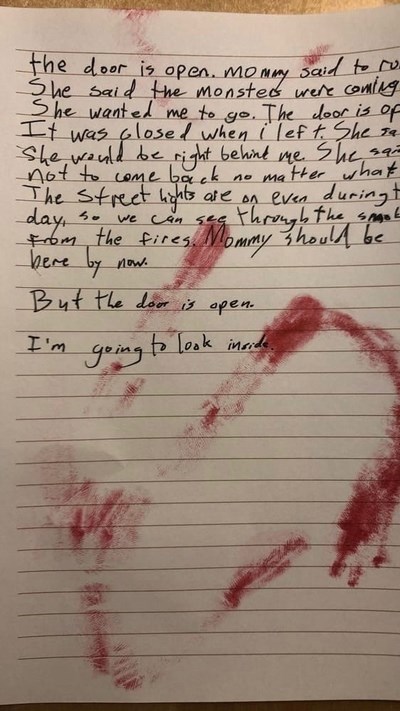 the door is open. mommy said to ru
She said the monsters were coming
She wanted me to go. The door is op
It was closed when i left. She sa
She would be right behind me. She sai
not to come back no matter what
The street lights are on even during t
day, so we can see through the smok
From the fires. Mommy should be
here by now.
But the door is open.
I'm going to look inside.